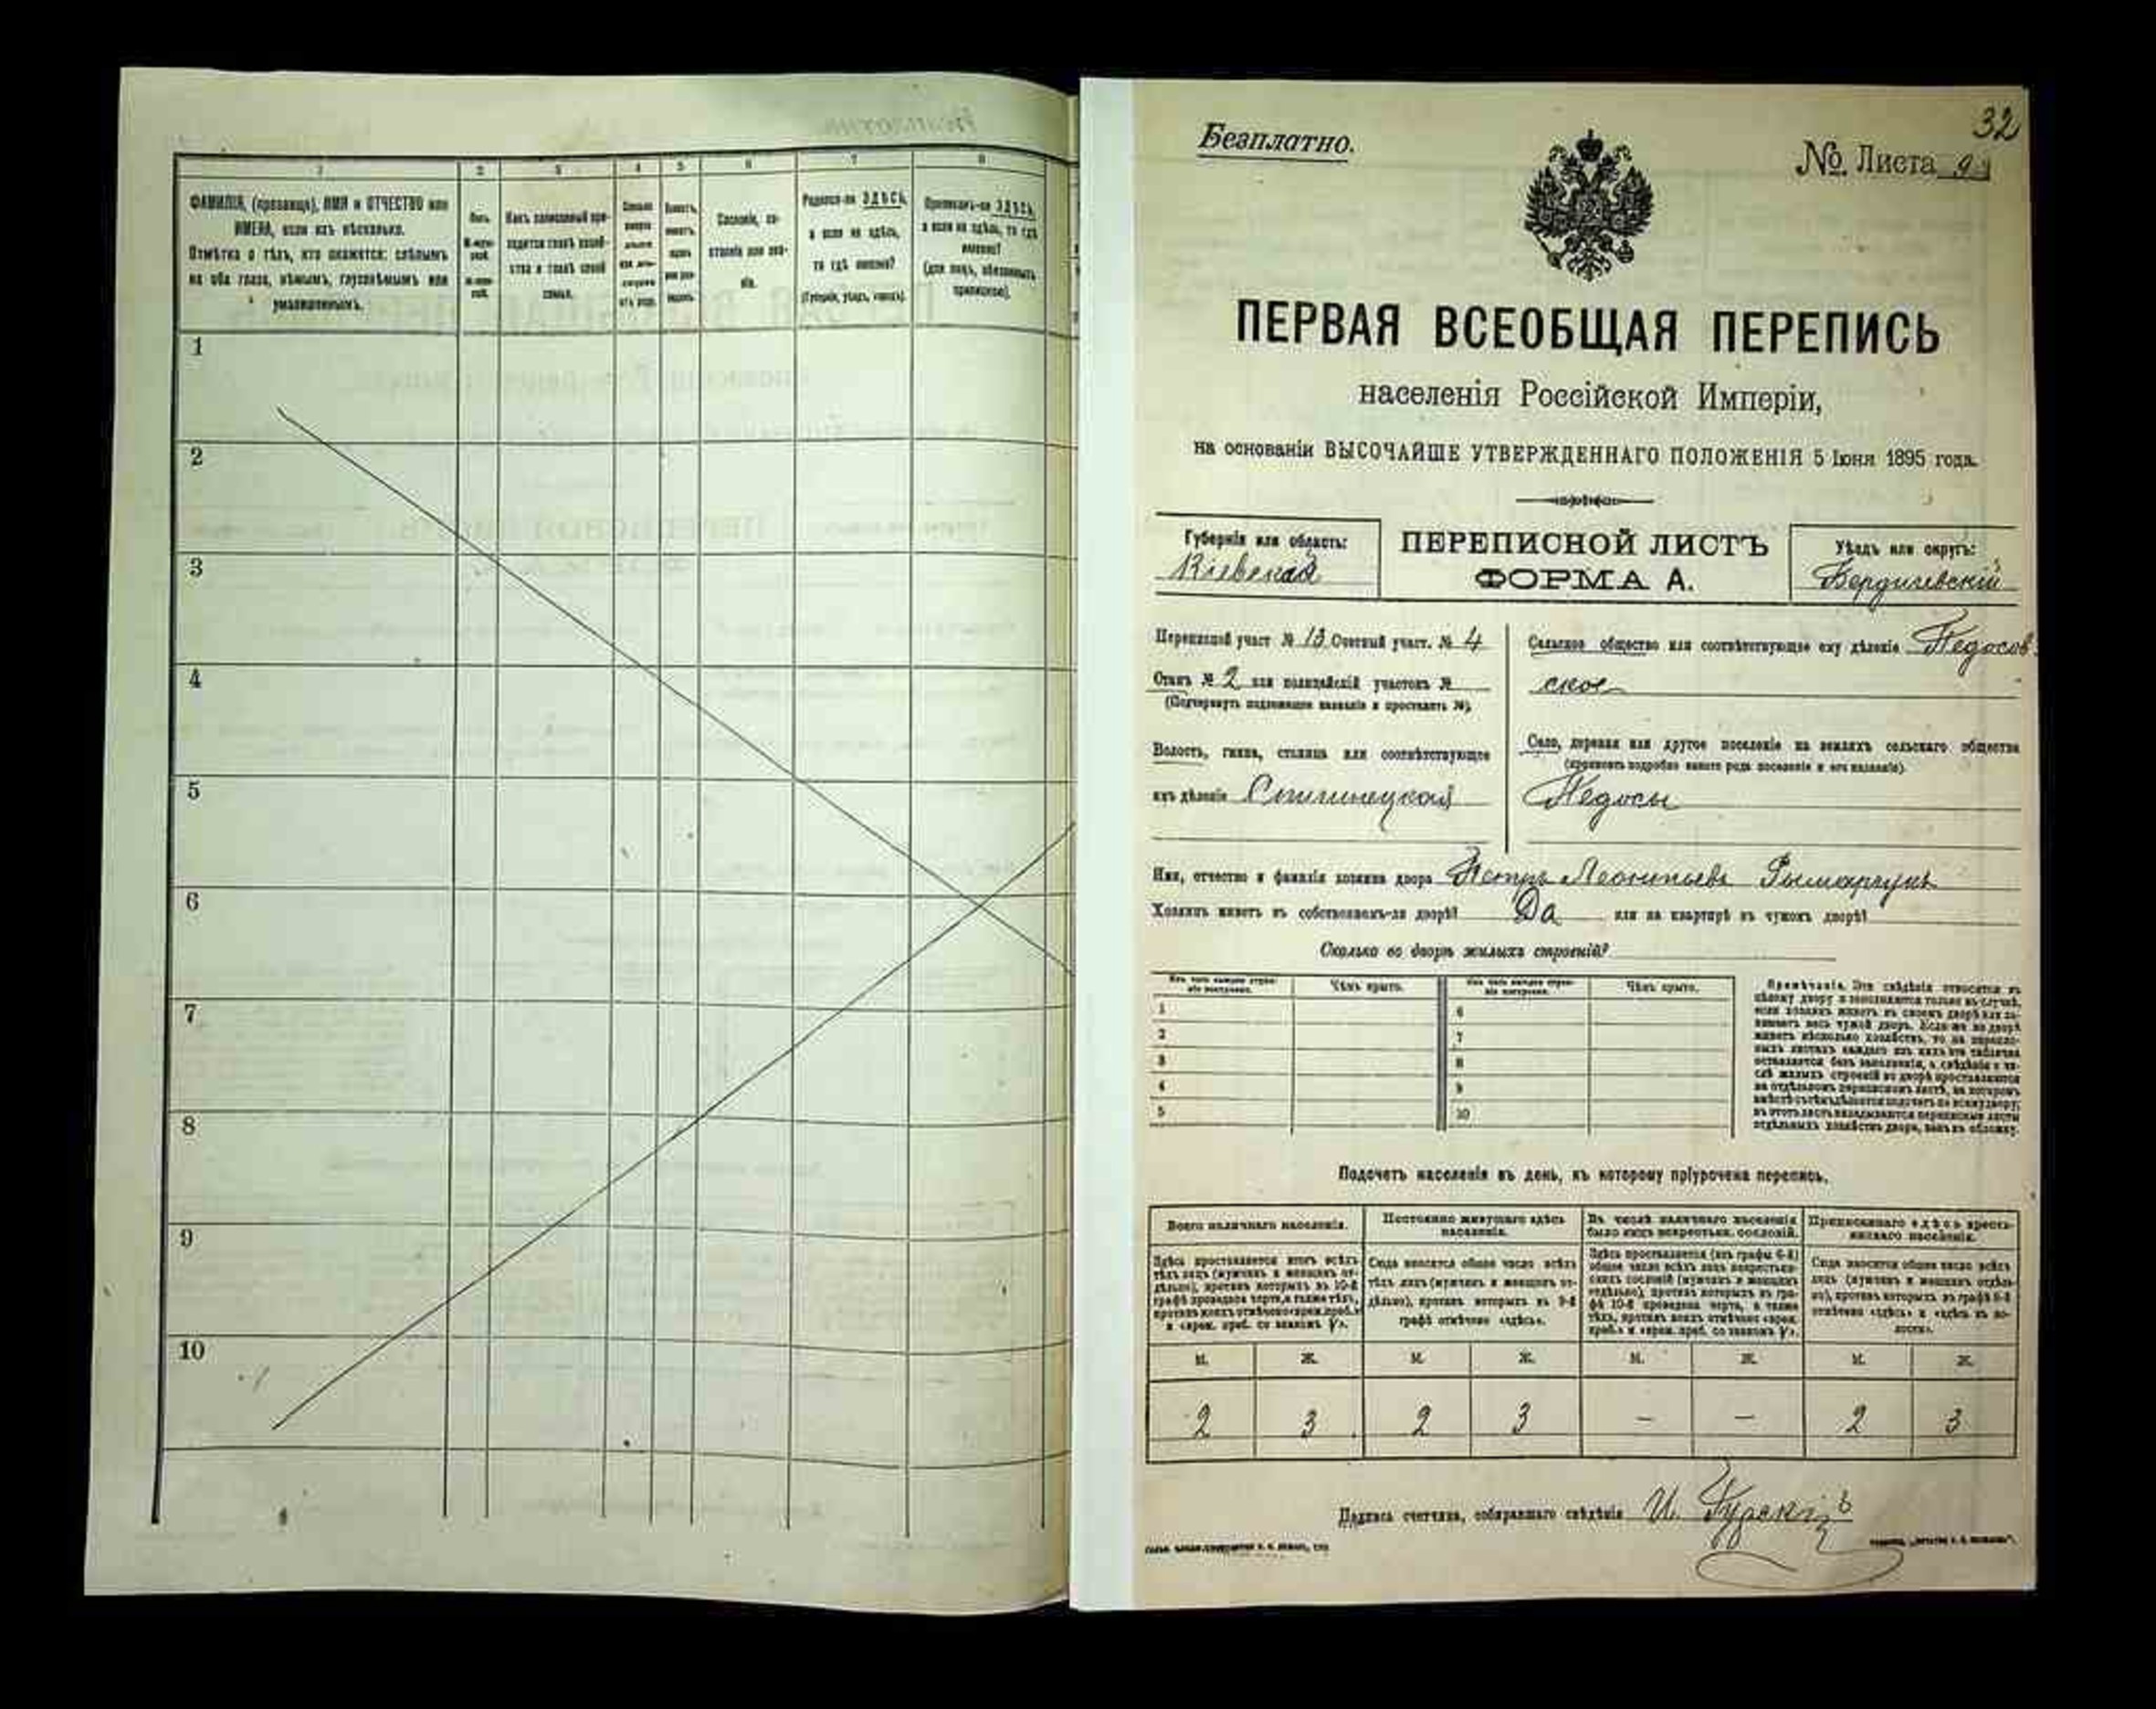 1
2
3
4
5
6
7
8
ФАМИЛІЯ, (прозвище), ИМЯ и ОТЧЕСТВО или
ИМЕНА, если ихъ нѣсколько.
Отмѣтка о тѣхъ, кто окажется: слѣпымъ
на оба глаза, нѣмымъ, глухонѣмымъ или
умалишеннымъ.
Полъ.
Какъ записанный при-
ходится главѣ хозяй-
ства и главѣ своей
семьи.
Сословіе, со-
стояніе или зва-
ніе.
Родился-ли ЗДѢСЬ,
а если не здѣсь,
то гдѣ именно?
(Губернія, уѣздъ, городъ).
Приписанъ-ли ЗДѢСЬ,
а если не здѣсь, то гдѣ
именно?
(для лицъ, обязанныхъ
припиской).
1
2
3
4
5
6
7
8
9
10
32
Безплатно.
№ Листа
ПЕРВАЯ ВСЕОБЩАЯ ПЕРЕПИСЬ
населенія Россійской Имперіи,
на основаніи ВЫСОЧАЙШЕ УТВЕРЖДЕННАГО ПОЛОЖЕНІЯ 5 Іюня 1895 года.
Губернія или область:
Кіевская
ПЕРЕПИСНОЙ ЛИСТЪ
ФОРМА А.
Уѣздъ или округъ:
Бердичевскій
Переписной участ № 13 Счетный участ. № 4
Станъ № 2 или полицейскій участокъ №
(Подчеркнуть подлежащее названіе и проставить №).
Волость, гмина, станица или соотвѣтствующее
имъ дѣленіе Спичинецкая
Сельское общество или соотвѣтствующее ему дѣленіе Педосов
ское
Село, деревня или другое поселеніе на земляхъ сельскаго общества
(прописать подробно какого рода поселеніе и его названіе).
Педосы
Имя, отчество и фамилія хозяина двора Петръ Леонтьевъ
Хозяинъ живетъ въ собственномъ-ли дворѣ? Да или на квартирѣ въ чужомъ дворѣ?
Сколько во дворѣ жилыхъ строеній?
Изъ чего каждое строе-
ніе построено.
Чѣмъ крыто.
Изъ чего каждое строе-
ніе построено.
Чѣмъ крыто.
1
2
3
4
5
6
7
8
9
10
Примѣчаніе. Эти свѣдѣнія относятся къ
цѣлому двору и заполняются только въ случаѣ,
если хозяинъ живетъ въ своемъ дворѣ или за-
нимаетъ весь чужой дворъ. Если же во дворѣ
живетъ нѣсколько хозяйствъ, то на перепис-
ныхъ листахъ каждаго изъ нихъ эта табличка
оставляется безъ заполненія, а свѣдѣнія о чи-
слѣ жилыхъ строеній во дворѣ проставляются
на отдѣльномъ переписномъ листѣ, на которомъ
вмѣстѣ съ тѣмъ дѣлается подсчетъ по всему двору;
въ этотъ листъ вкладываются переписные листы
отдѣльныхъ хозяйствъ двора, какъ въ обложку.
Подсчетъ населенія въ день, къ которому пріурочена перепись.
Всего наличнаго населенія.
Здѣсь проставляется итогъ всѣхъ
тѣхъ лицъ (мужчинъ и женщинъ от-
дѣльно), противъ которыхъ въ 10-й
графѣ проведена черта, а также тѣхъ,
противъ коихъ отмѣчено «врем. преб.»
и «врем. преб. со знакомъ V».
Постоянно живущаго здѣсь
населенія.
Сюда вносится общее число всѣхъ
тѣхъ лицъ (мужчинъ и женщинъ от-
дѣльно), противъ которыхъ въ 9-й
графѣ отмѣчено «здѣсь».
Въ числѣ наличнаго населенія
было лицъ некрестьян. сословій.
Здѣсь проставляется (изъ графы 6-й)
общее число всѣхъ лицъ некрестьян-
скихъ сословій (мужчинъ и женщинъ
отдѣльно), противъ которыхъ въ гра-
фѣ 10-й проведена черта, а также
тѣхъ, противъ коихъ отмѣчено «врем.
преб.» и «врем. преб. со знакомъ V».
Приписаннаго здѣсь кресть-
янскаго населенія.
Сюда вносится общее число всѣхъ
лицъ (мужчинъ и женщинъ отдѣль-
но), противъ которыхъ въ графѣ 8-й
отмѣчено «здѣсь» и «здѣсь въ во-
лости».
М. Ж. М. Ж. М. Ж. М. Ж.
2 3 2 3 — — 2 3
Подпись счетчика, собиравшаго свѣдѣнія И. Гурскій